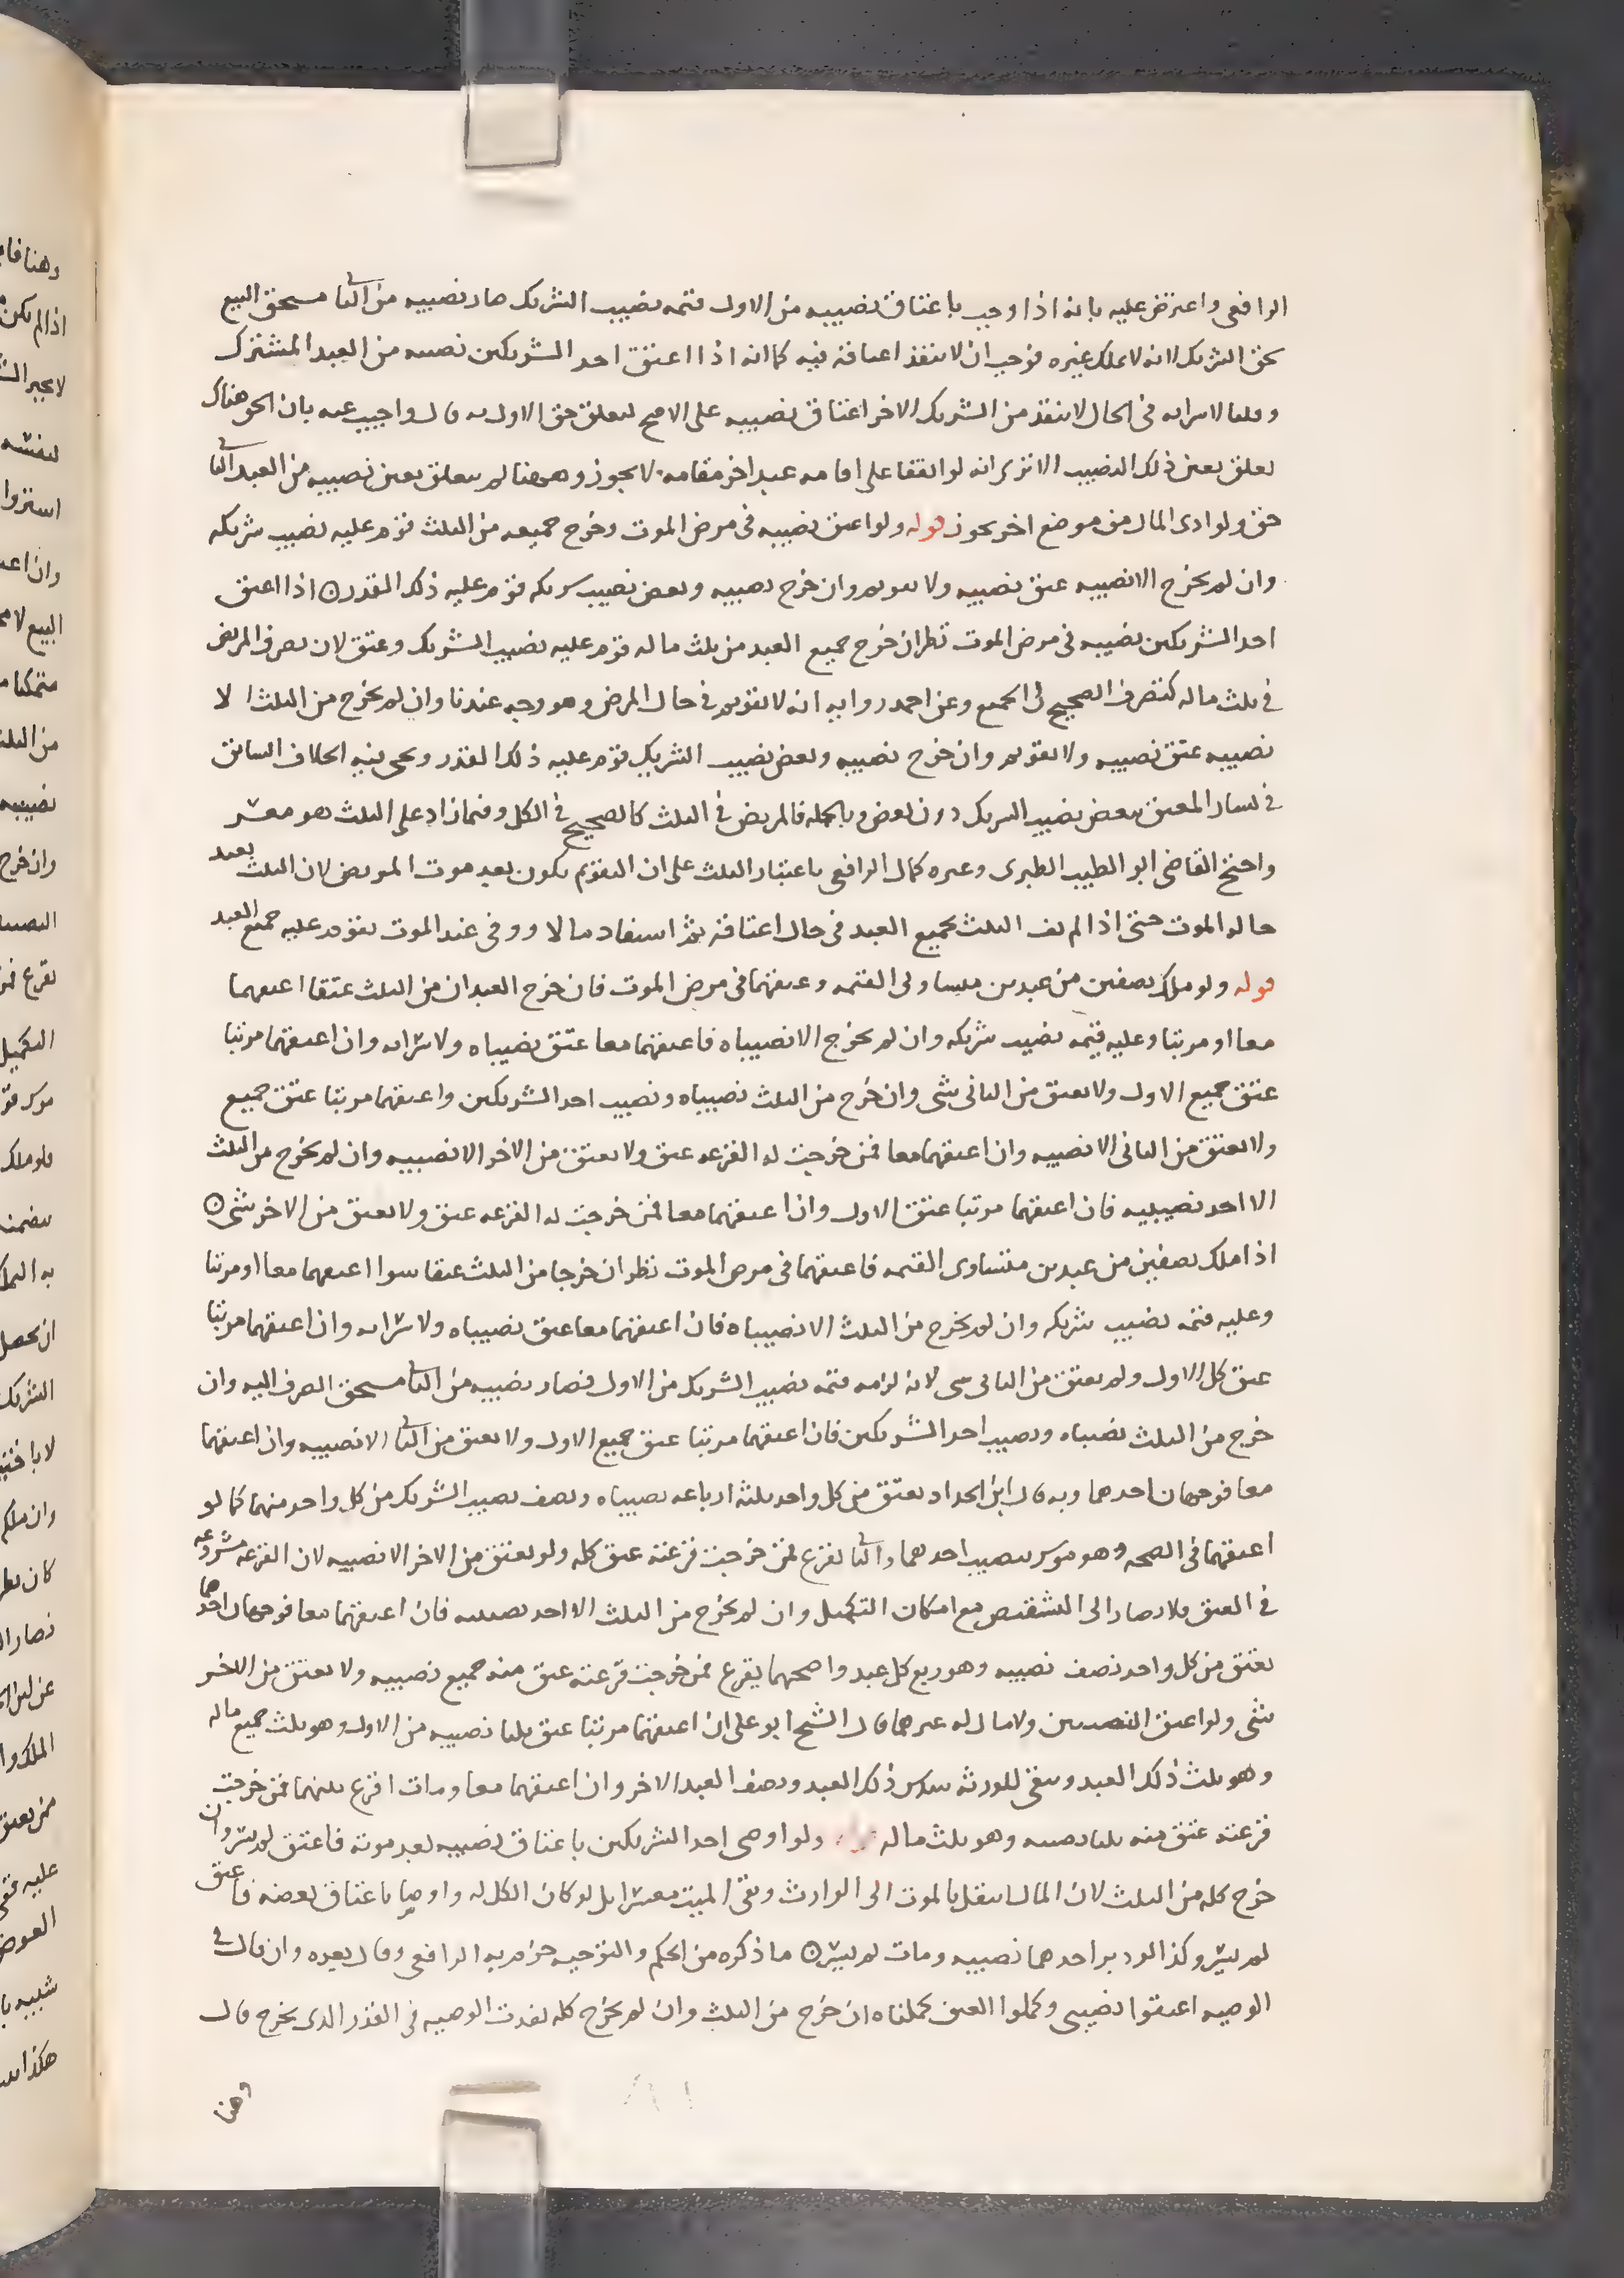 الرافعى واعترض عليه بانه اذا وجب باعتاق نصيبه من الاول قيمه نصيب الشريك صار نصيبه من الثانى مستحق البيع
بحق الشريك لانه لا يملك غيره فوجب ان لا ينفذ اعتاقه فيه كما انه اذا اعتق احد الشريكين نصيبه من العبد المشترك
وقلنا لا سرايه فى الحال لا ينفذ من الشريك الاخر اعتاق نصيبه على الاصح لتعلق حق الاول به قال واجيب عنه بان الحق هناك
تعلق بعين ذلك النصيب الا ترى انه لو اتفقا على اقامه عبد اخر مقامه لا يجوز وههنا لم يتعلق بعين نصيبه من العبد الثانى
حق ولو ادى المال من موضع اخر يجوز قوله ولو اعتق نصيبه فى مرض الموت وخرج جميعه من الثلث قوم عليه نصيب شريكه
وان لم يخرج الا نصيبه عتق نصيبه ولا تقويم وان خرج نصيبه وبعض نصيب شريكه قوم عليه ذلك القدر ۞ اذا اعتق
احد الشريكين نصيبه فى مرض الموت نظر ان خرج جميع العبد من ثلث ماله قوم عليه نصيب الشريك وعتق لان تصرف المريض
فى ثلث ماله كتصرف الصحيح فى الجميع وعن احمد روايه انه لا تقويم فى حال المرض وهو وجه عندنا وان لم يخرج من الثلث الا
نصيبه عتق نصيبه ولا تقويم وان خرج نصيبه وبعض نصيب الشريك قوم عليه ذلك القدر ويجى فيه الخلاف السابق
فى يسار المعتق ببعض نصيب الشريك دون بعض وبالجمله فالمريض فى الثلث كالصحيح فى الكل وفيما زاد على الثلث هو معسر
واحتج القاضى ابو الطيب الطبرى وغيره كما قال الرافعى باعتبار الثلث على ان التقويم يكون بعد موت المريض لان الثلث يعتبر
حاله الموت حتى اذا لم يف الثلث بجميع العبد فى حال اعتاقه ثم استفاد مالا ووفى عند الموت تقوم عليه جميع العبد
قوله ولو ملك نصفين من عبدين متساوى القيمه وعتقهما فى مرض الموت فان خرج العبدان من الثلث عتقا اعتقهما
معا او مرتبا وعليه قيمه نصيب شريكه وان لم يخرج الا نصيباه فاعتقهما معا عتق نصيباه ولا سرايه وان اعتقهما مرتبا
عتق جميع الاول ولا يعتق من الثانى شى وان خرج من الثلث نصيباه ونصيب احد الشريكين واعتقهما مرتبا عتق جميع
ولا يعتق من الثانى الا نصيبه وان اعتقهما معا فمن خرجت له القرعه عتق ولا يعتق من الاخر الا نصيبه وان لم يخرج من الثلث
الا احد نصيبيه فان اعتقهما مرتبا عتق الاول وان اعتقهما معا فمن خرجت له القرعه عتق ولا يعتق من الاخر شى ۞
اذا ملك نصفين من عبدين متساوى القيمه فاعتقهما فى مرض الموت نظر ان خرجا من الثلث عتقا سوا اعتقهما معا او مرتبا
وعليه قيمه نصيب شريكه وان لم يخرج من الثلث الا نصيباه فان اعتقهما معا عتق نصيباه ولا سرايه وان اعتقهما مرتبا
عتق كل الاول ولم يعتق من الثانى شى لانه لزمه قيمه نصيب الشريك من الاول فصار نصيبه من الثانى مستحق الصرف اليه وان
خرج من الثلث نصيباه ونصيب احد الشريكين فان اعتقهما مرتبا عتق جميع الاول ولا يعتق من الثانى الا نصيبه وان اعتقهما
معا فوجهان احدهما وبه قال ابن الحداد يعتق من كل واحد ثلثه ارباعه نصيباه ونصف نصيب الشريك من كل واحد منهما كما لو
اعتقهما فى الصحه وهو موسر بنصيب احدهما والثانى يقرع فمن خرجت قرعته عتق كله ولم يعتق من الاخر الا نصيبه لان القرعه مشروعه
فى العتق فلا يصار الى التشقيص مع امكان التكميل وان لم يخرج من الثلث الا احد نصيبيه فان اعتقهما معا فوجهان احدهما
يعتق من كل واحد نصف نصيبه وهو ربع كل عبد واصحهما يقرع فمن خرجت قرعته عتق منه جميع نصيبه ولا يعتق من الاخر
شى ولو اعتق النصيبين ولا مال له غيرهما قال الشيخ ابو على ان اعتقهما مرتبا عتق ثلثا نصيبه من الاول وهو ثلث جميع ماله
وهو ثلث ذلك العبد ويبقى للورثه سدس ذلك العبد ونصف العبد الاخر وان اعتقهما معا ومات اقرع بينهما فمن خرجت
قرعته عتق منه ثلثا نصيبه وهو ثلث ماله قوله ولو اوصى احد الشريكين باعتاق نصيبه بعد موته فاعتق لم يسر وان
خرج كله من الثلث لان المال ينتقل بالموت الى الوارث وبقى الميت معسرا بل لو كان الكل له واوصى باعتاق بعضه فاعتق
لم يسر وكذا لو دبر احدهما نصيبه ومات لم يسر ۞ ما ذكره من الحكم والتوجيه جزم به الرافعى وقال بعده وان قال فى
الوصيه اعتقوا نصيبى وكملوا العتق كملناه ان خرج من الثلث وان لم يخرج كله نفذت الوصيه فى القدر الذى يخرج قال
وهذا